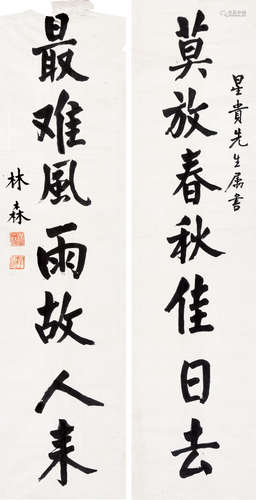 星貴先生属書
莫放春秋佳日去
最难風雨故人来
林森